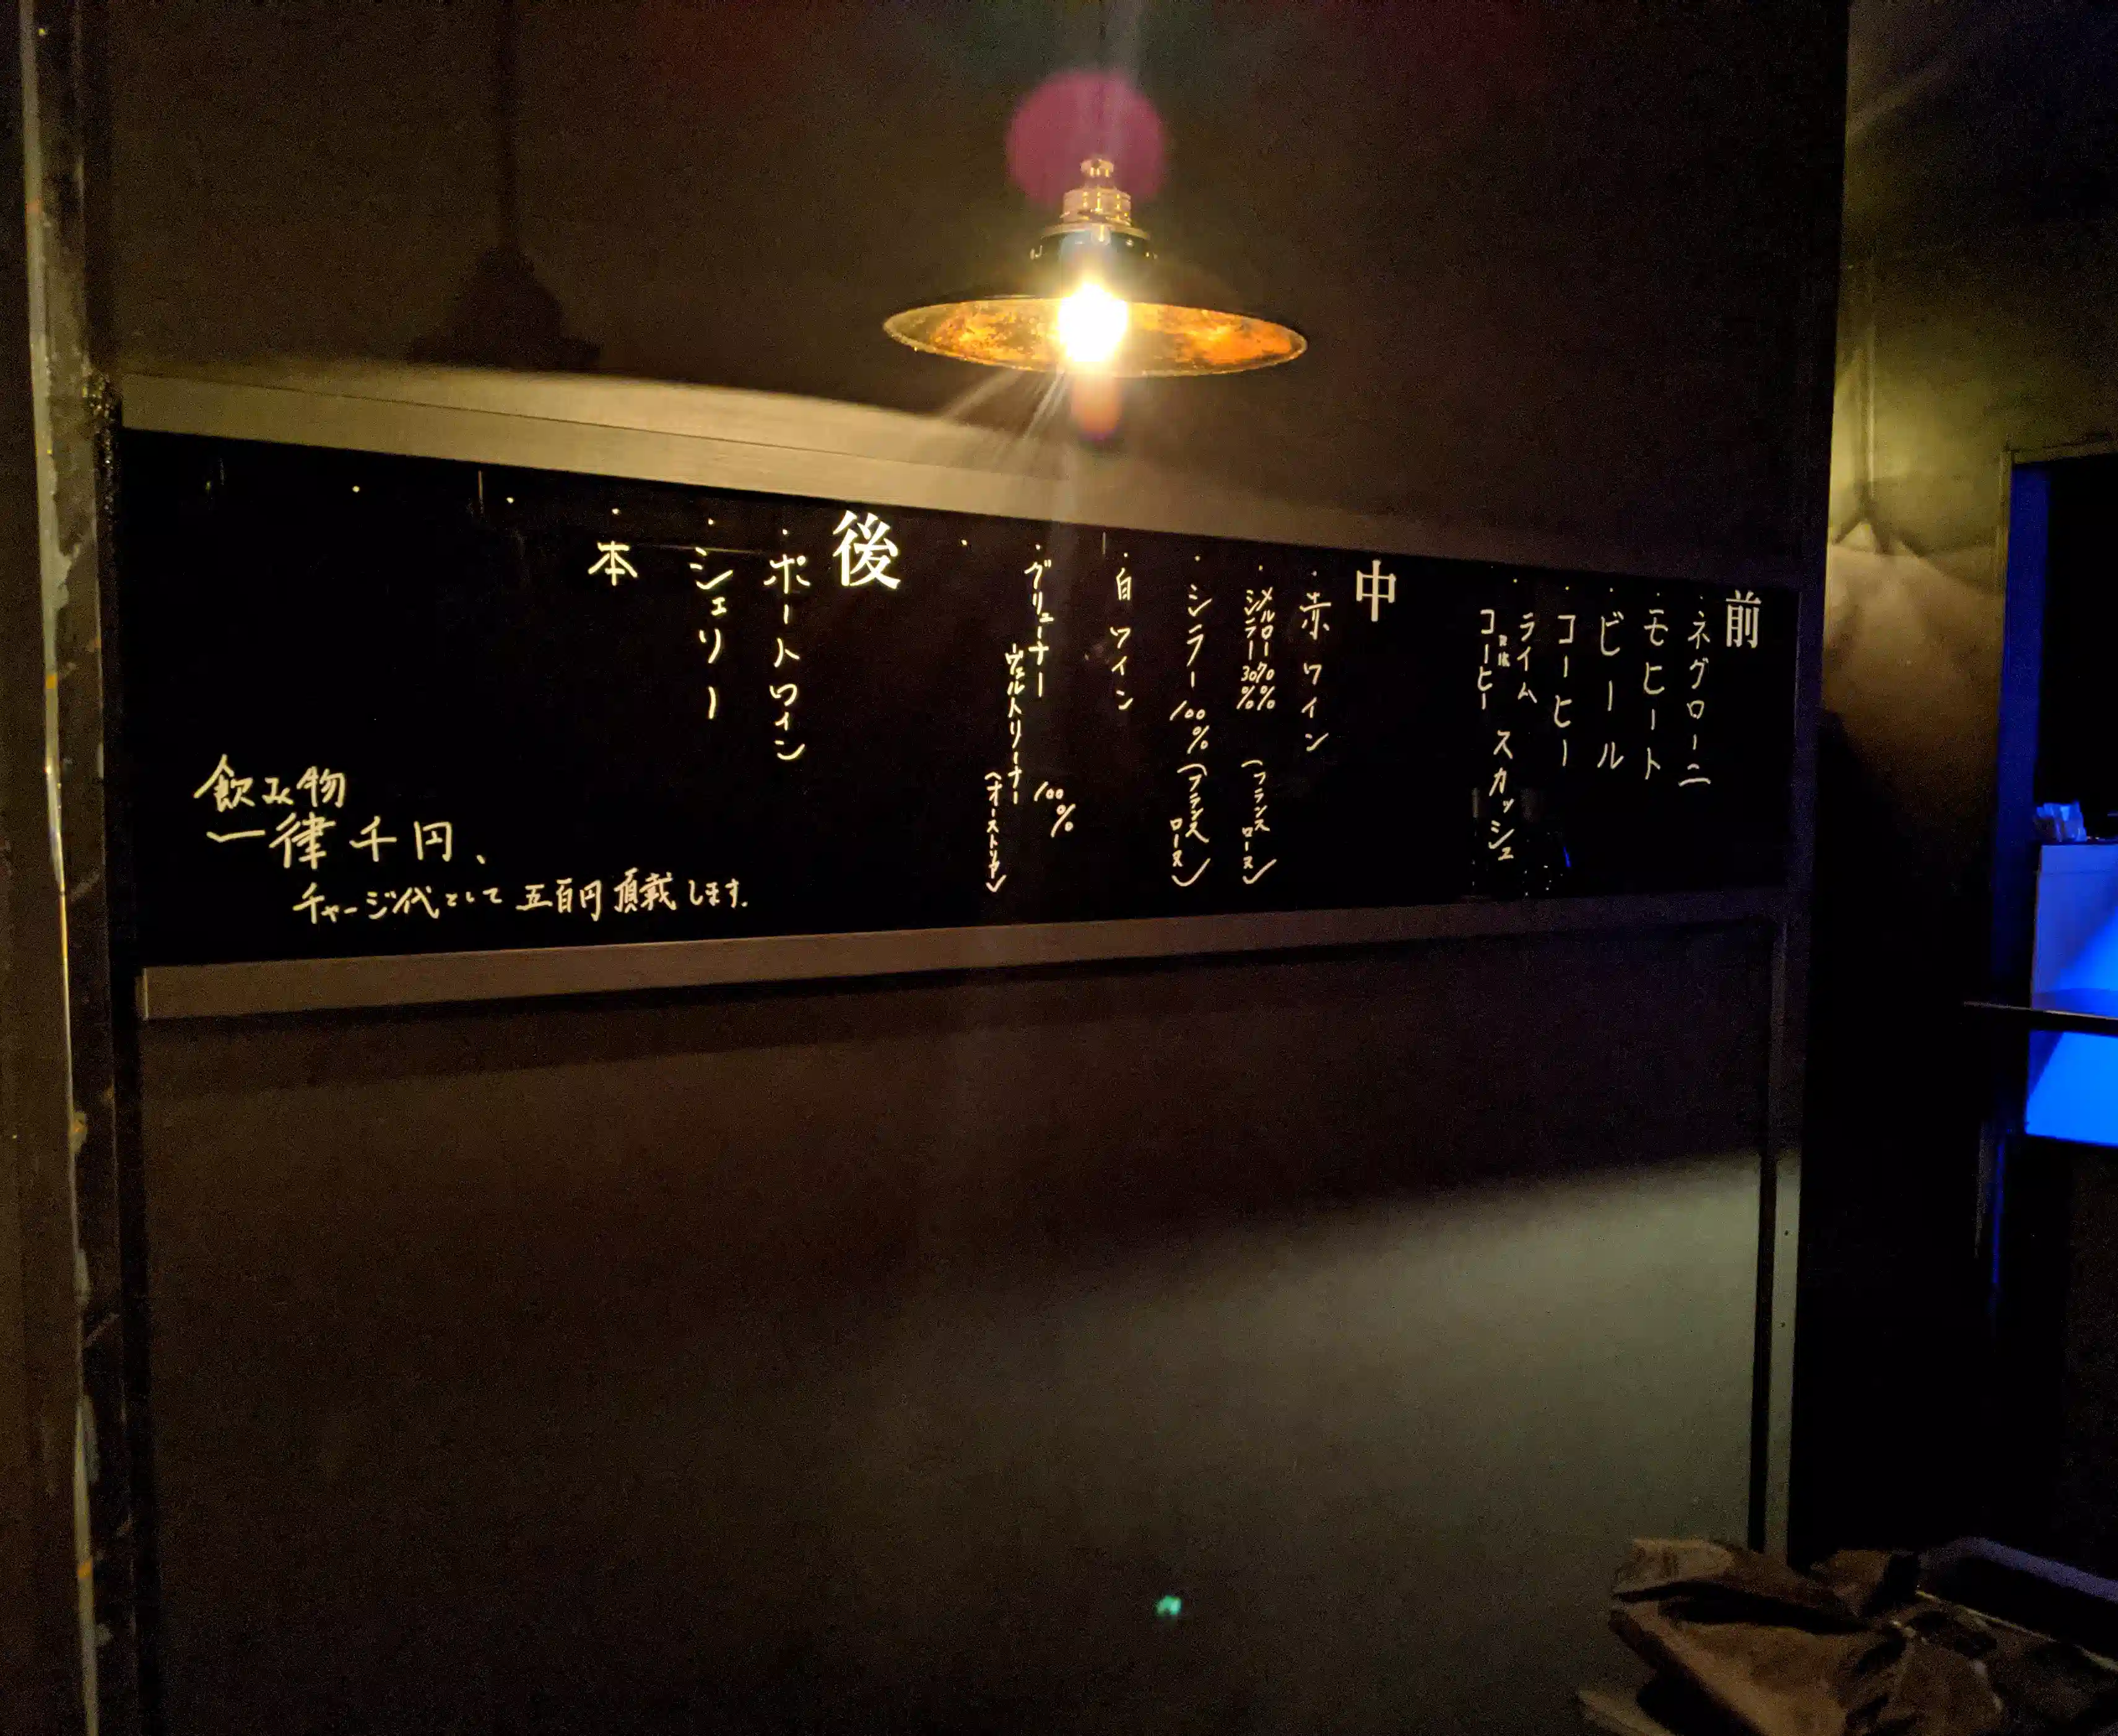 前
・ネグローニ
・モヒート
・ビール
・コーヒー
・ライム
コーヒー スカッシュ
中
・赤ワイン
・メルロー70%
シラー30%(フランス ローヌ)
・シラー100%(フランス ローヌ)
・白ワイン
・グリューナー
ヴェルトリーナー 100%(オーストリア)
後
・ポートワイン
・シェリー
・本
飲み物
一律千円、
チャージ代として五百円頂戴します。